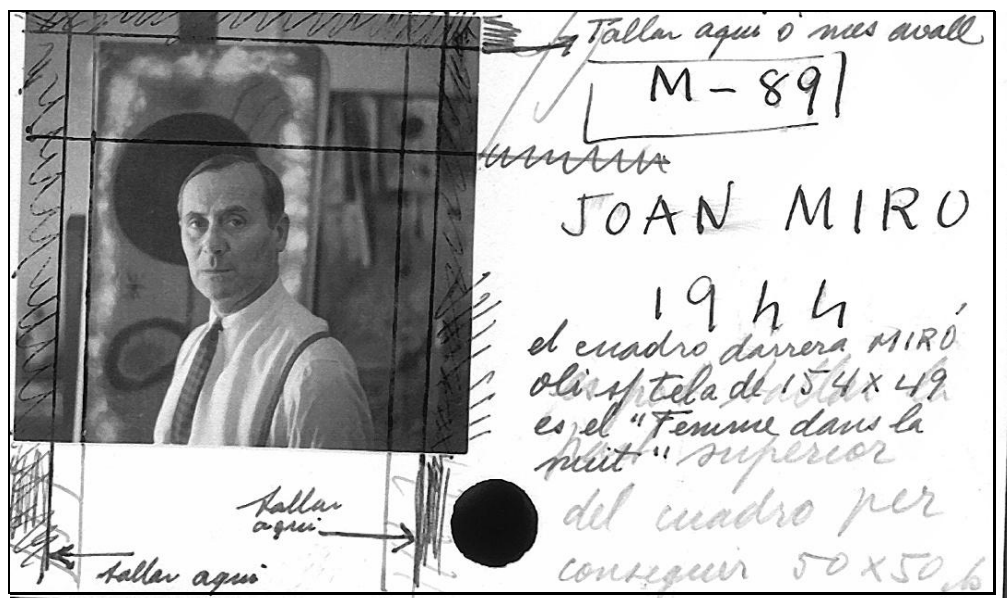 Tallar aqui ó mes avall
M-89
JOAN MIRO
1944
el cuadro darrera MIRÓ
oli s/tela de 154 x 49
es el "Femme dans la
nuit" superior
del cuadro per
conseguir 50 x 50
tallar
aqui
tallar aqui